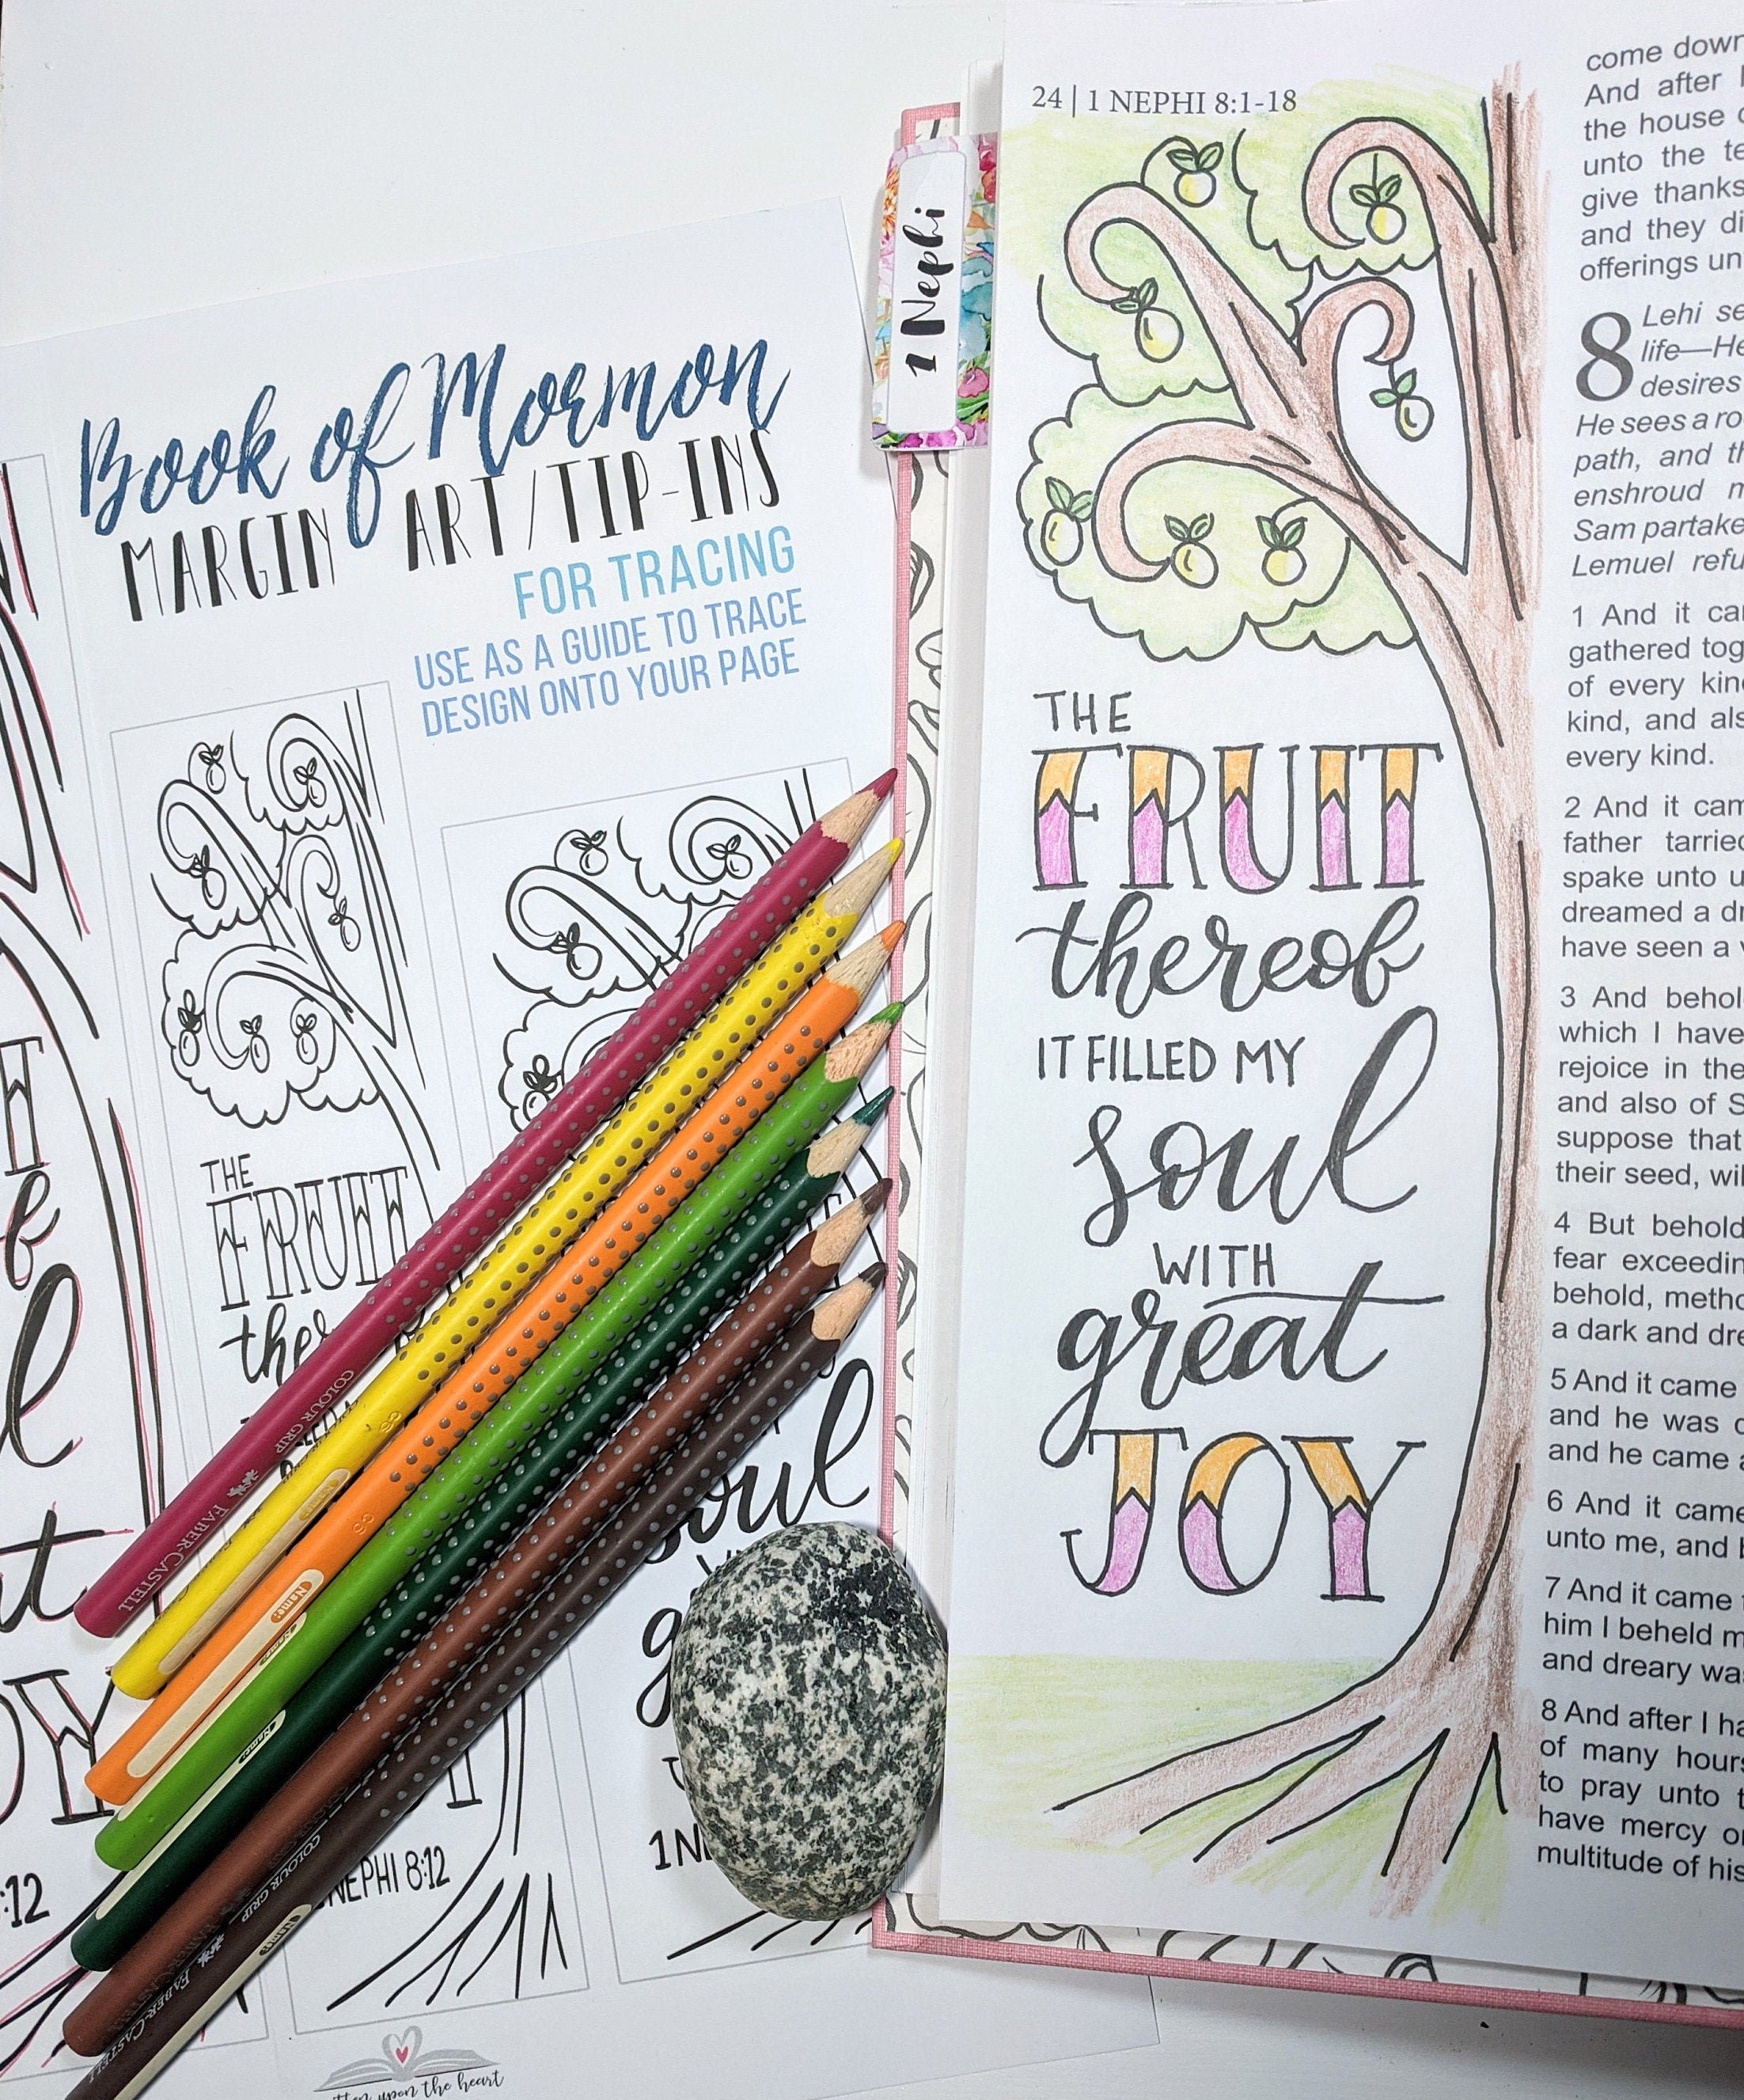 Book of Mormon
MARGIN ART/TIP-INS
FOR TRACING
USE AS A GUIDE TO TRACE
DESIGN ONTO YOUR PAGE
THE
FRUIT
soul
NEPHI 8:12
:12
upon the heart
COLOUR GRIP
FABER-CASTELL
Name:
Name:
Name:
COLOUR GRIP
FABER-CASTELL
Name:
1 Nephi
24 | 1 NEPHI 8:1-18
THE
FRUIT
thereof
IT FILLED MY
soul
WITH
great
JOY
come down
And after
the house
unto the
give thanks
and they
offerings
8 Lehi
life—He
desires
He sees a
path, and
enshroud
Sam partake
Lemuel
1 And it
gathered
of every
kind, and
every kind.
2 And it
father tarried
spake unto
dreamed a
have seen a
3 And
which I have
rejoice in the
and also of
suppose that
their seed,
4 But behold
fear
behold,
a dark and
5 And it came
and he was
and he came
6 And it came
unto me, and
7 And it came
him I beheld
and dreary
8 And after I
of many hours
to pray unto
have mercy
multitude of his